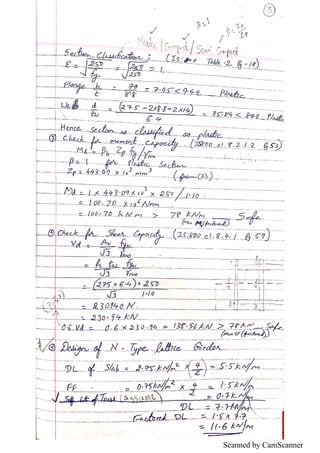 ③
β=1
Plastic / Compct / Semi Compct
Section Classification : (IS:800 Table-2 G-18)
ε = √250/fy = √250/250 = 1.
Flange b/t = 70/8.8 = 7.95 < 9.4ε Plastic
Web d/tw = (275 - 2×8.8 - 2×14)/6.4 = 35.84 < 84ε Plastic
Hence section is classified as plastic
③ Check for moment Capacity (IS800 cl.8.2.1.2 G53)
Md = βb Zp fy/γmo
β=1 for Plastic Section
Zp = 443.09 × 10³ mm³ (from (2))
Md = 1 × 443.09×10³ × 250/1.10.
= 100.70 × 10⁶ Nmm
= 100.70 kNm > 78 kNm Safe.
(max M/factored)
④ Check for Shear Capacity (IS:800 cl.8.4.1 G 59)
Vd = Av fyw / √3 γmo
= h tw fyw / √3 γmo
= (275×6.4)×250 / √3 1.10
= 230940 N
= 230.94 kN
0.6Vd = 0.6×230.94 = 138.56 kN > 78 kN, Safe.
⑥ Design of N-Type lattice Girder
DL of Slab = 2.75 kN/m² × (4/2) = 5.5 kN/m
FF = 0.75 kN/m² × 4/2 = 1.5 kN/m
Self Wt of Truss (ASSUME) = 0.7 kN/m
DL = 7.7 kN/m
Factored DL = 1.5 × 7.7
= 11.6 kN/m
Scanned by CamScanner